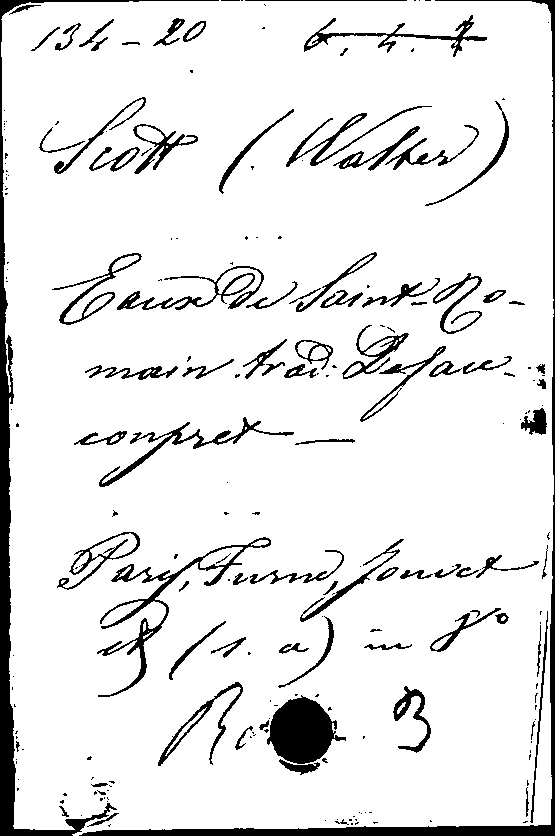 134-20 6. 4. 7
Scott (Walter)
Eaux de Saint-Ro-
main trad. Defau-
conpret —
Paris, Furne, Jouvet
et (s. a) in 8º
B